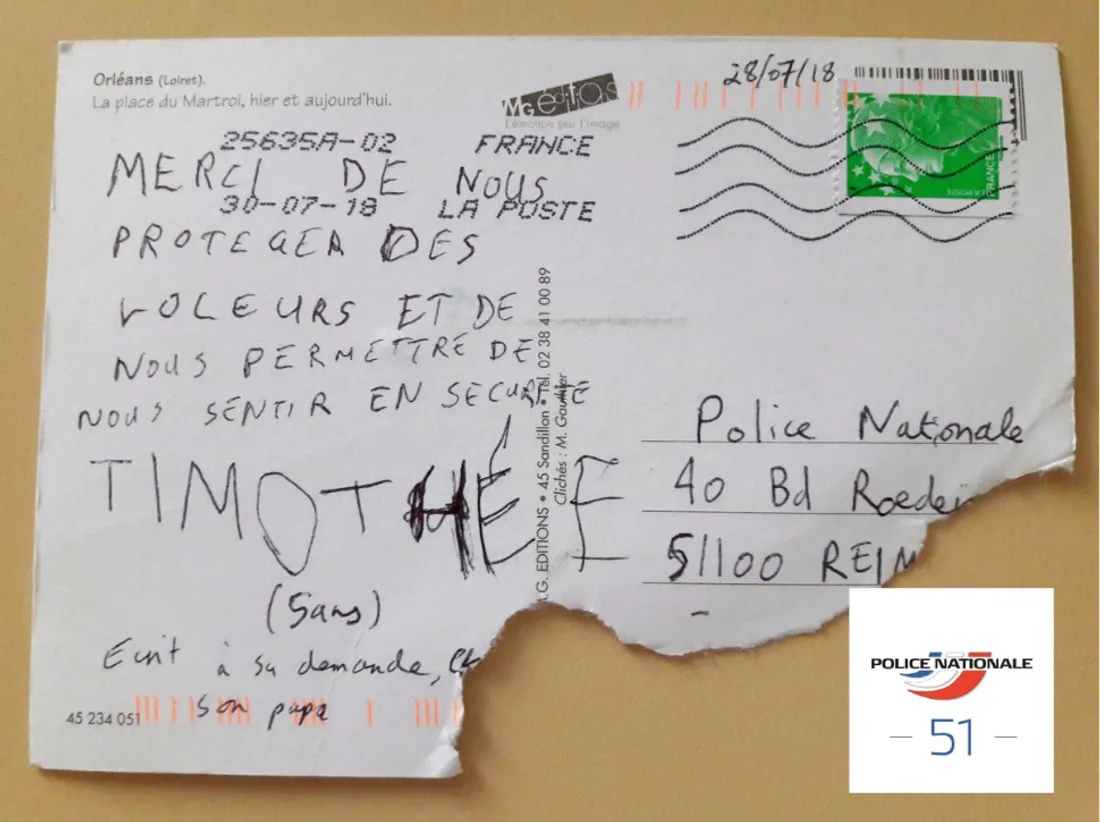 Orléans (Loiret).
La place du Martroi, hier et aujourd'hui.
MG éditions
L'émotion par l'image
28/07/18
25635A-02 FRANCE
30-07-18 LA POSTE
FRANCE
LA POSTE
MERCI DE NOUS
PROTEGER DES
VOLEURS ET DE
NOUS PERMETTRE DE
NOUS SENTIR EN SECURITE
TIMOTHÉE
(5ans)
Ecrit à sa demande,
son papa
45 234 051
M.G. EDITIONS • 45 Sandillon • Tél. 02 38 41 00 89
Clichés : M. Gauthier
Police Nationale
40 Bd Roeder
51100 REIM
POLICE NATIONALE
— 51 —